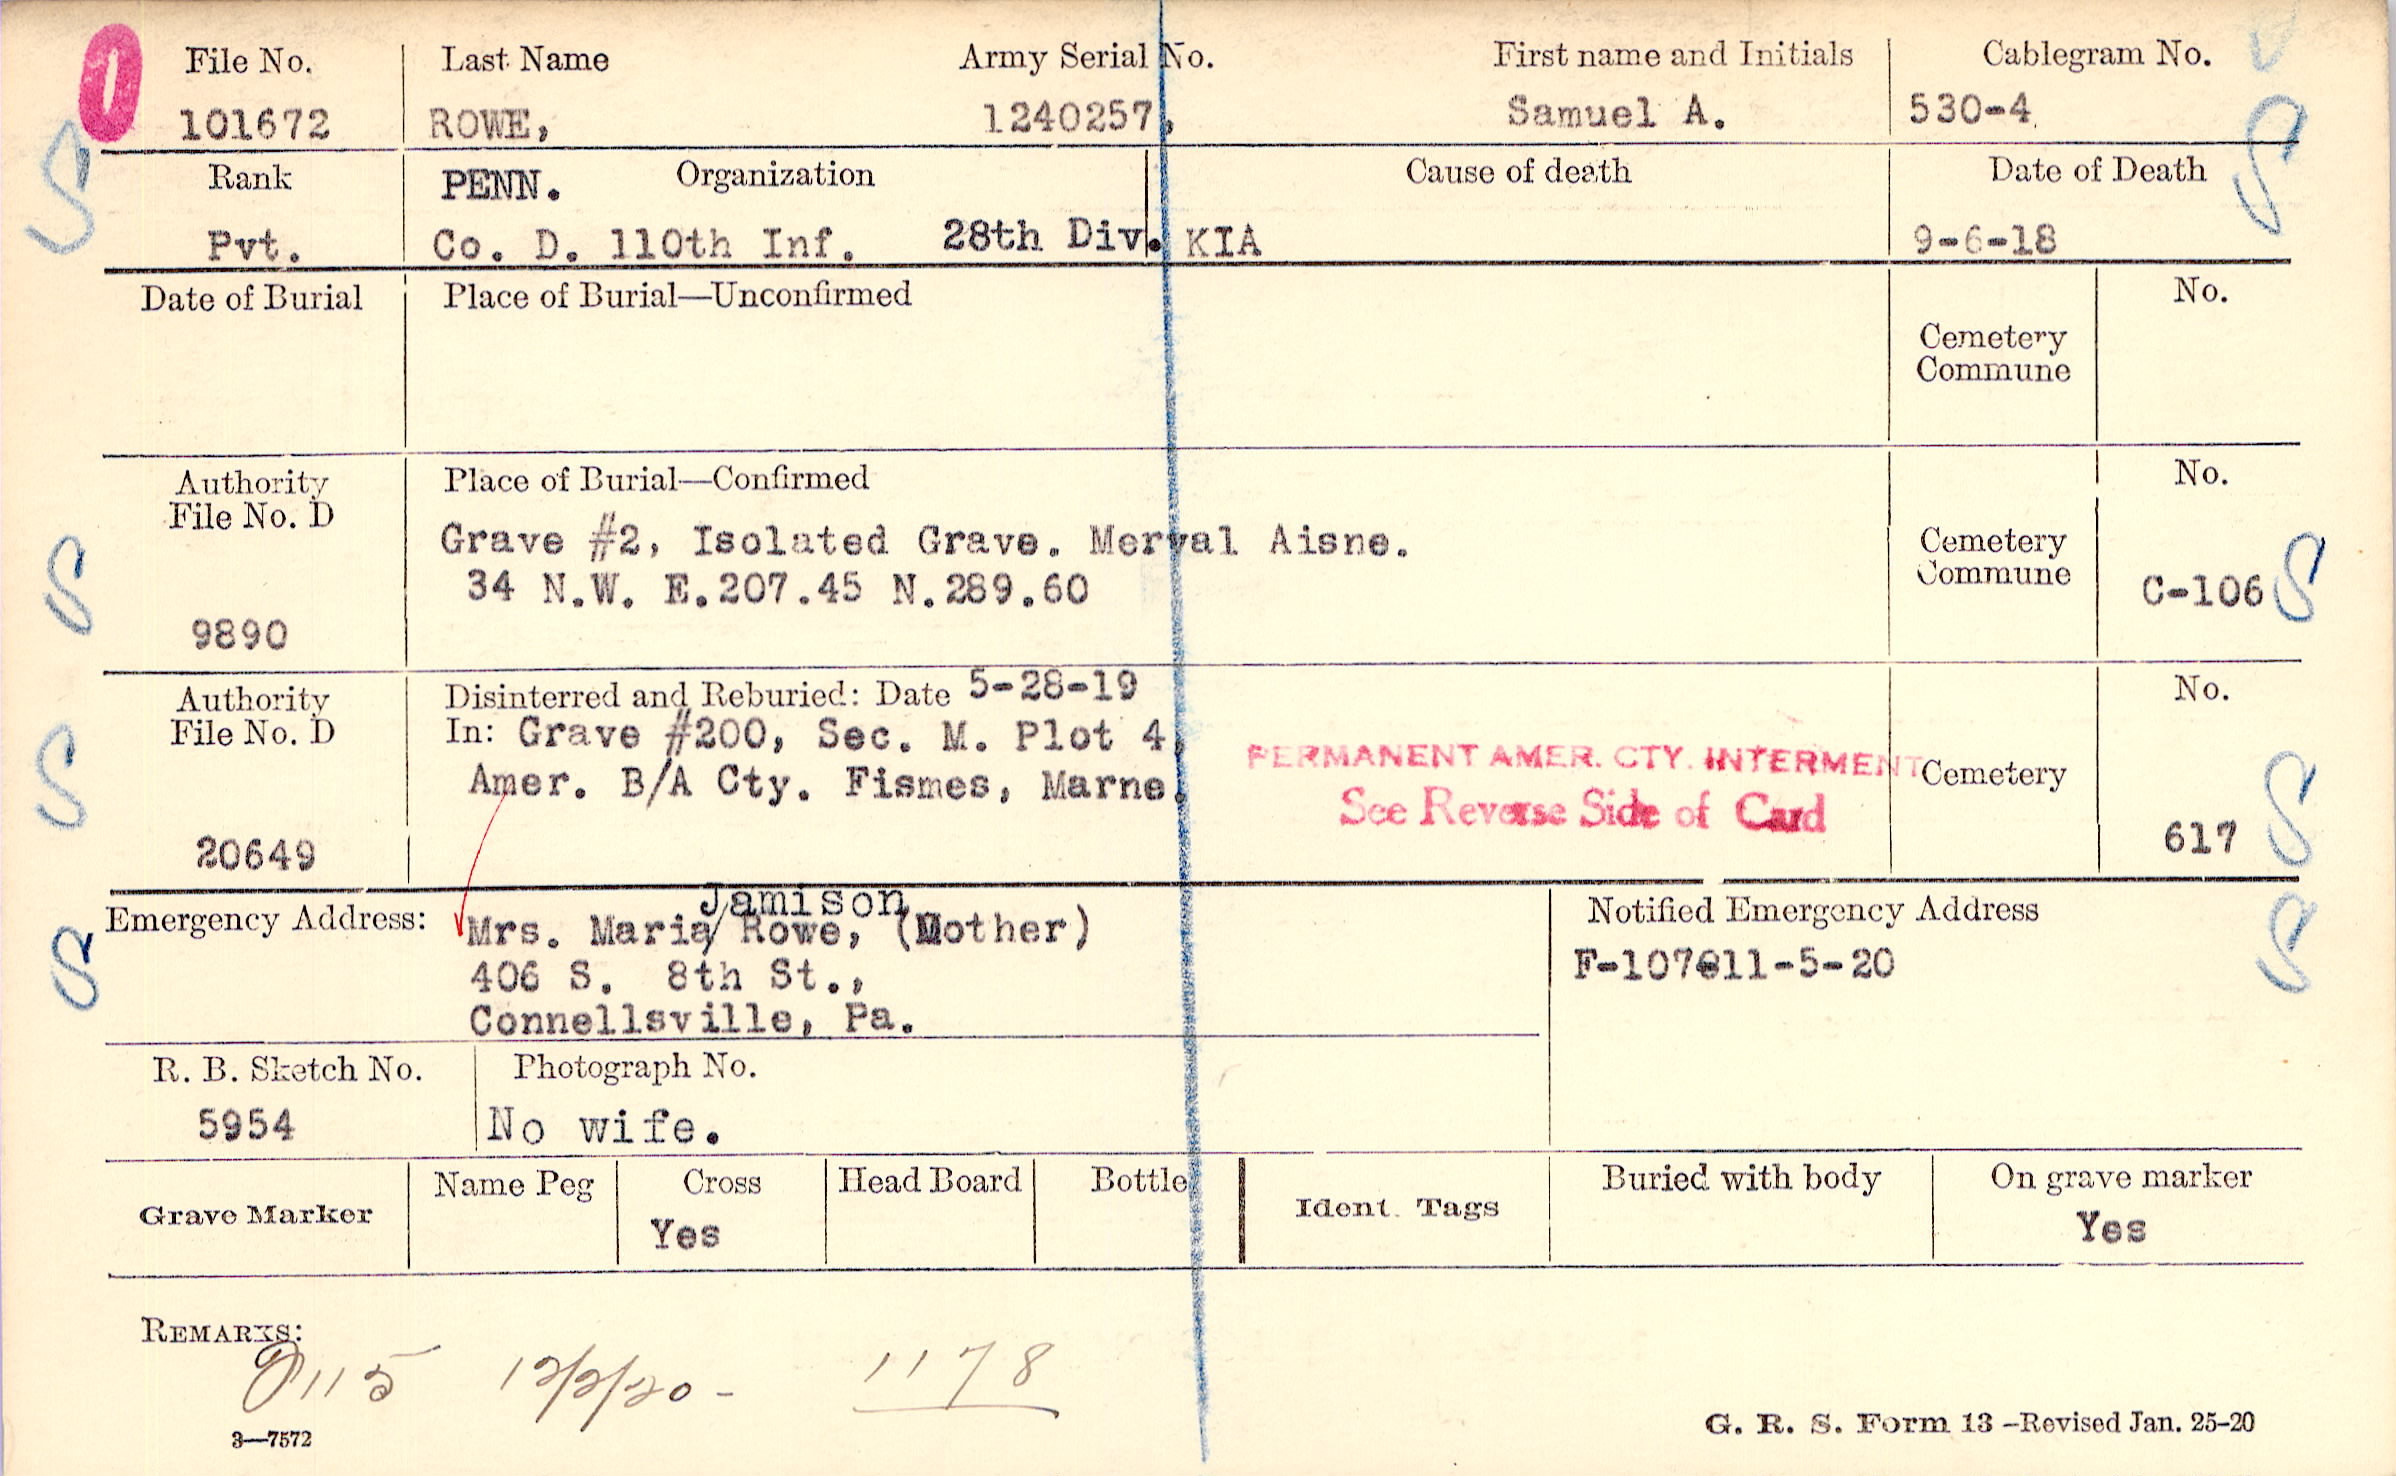 File No. Last Name Army Serial No. First name and Initials Cablegram No.
101672 ROWE, 1240257, Samuel A. 530-4
Rank PENN. Organization Cause of death Date of Death
Pvt. Co. D. 110th Inf. 28th Div. KIA 9-6-18
Date of Burial Place of Burial—Unconfirmed No.
Cemetery
Commune
Authority Place of Burial—Confirmed No.
File No. D
Grave #2, Isolated Grave. Merval Aisne. Cemetery
Commune
34 N.W. E.207.45 N.289.60 C-106
9890
Authority Disinterred and Reburied: Date 5-28-19 No.
File No. D In: Grave #200, Sec. M. Plot 4,
PERMANENT AMER. CTY. INTERMENT
Amer. B/A Cty. Fismes, Marne. Cemetery
See Reverse Side of Card
20649 617
Jamison
Emergency Address: Mrs. Maria/ Rowe, (Mother) Notified Emergency Address
406 S. 8th St., 11-5-20
Connellsville, Pa.
R. B. Sketch No. Photograph No.
5954 No wife.
Grave Marker Name Peg Cross Head Board Bottle Ident. Tags Buried with body On grave marker
Yes Yes
REMARKS:
115 1178
3—7572
G. R. S. Form 13—Revised Jan. 25-20